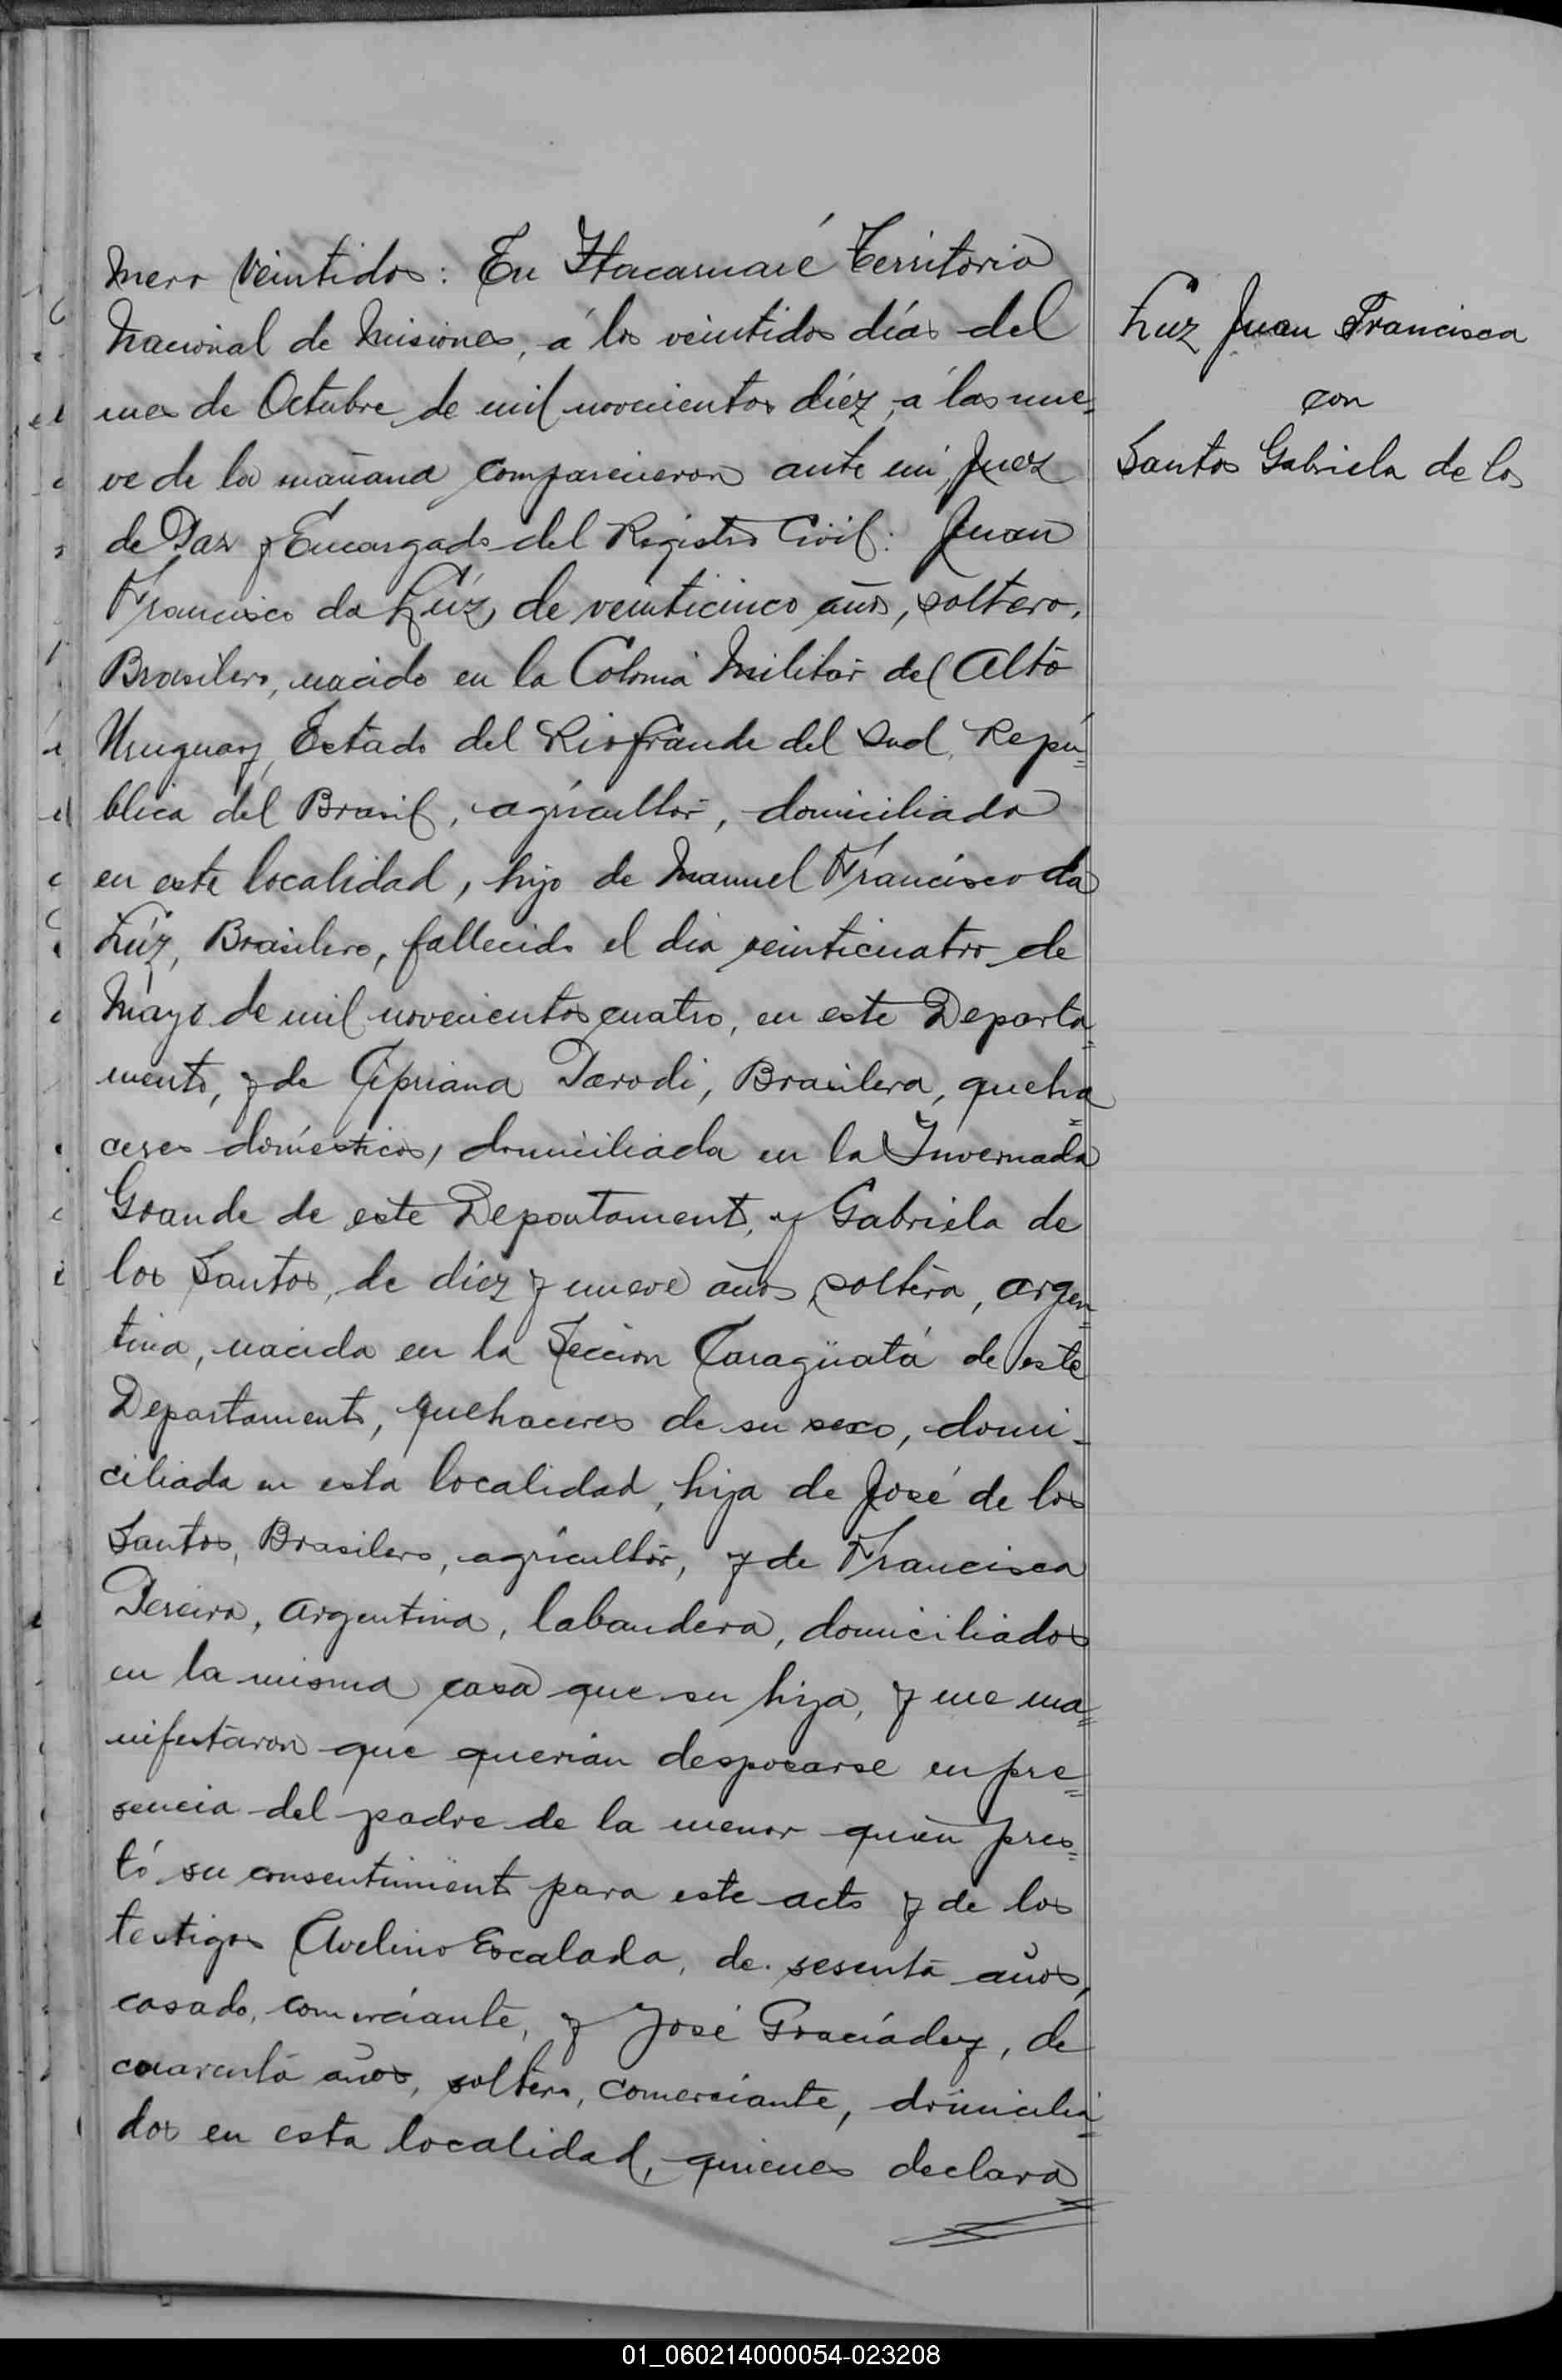 mero Veintidos: En Itacaruaré Territorio
Nacional de Misiones, á los veintidos días del
mes de Octubre de mil novecientos diéz, á las nue=
ve de la mañana comparecieron ante mi, Juez
de Paz y Encargado del Registro Civil: Juan
Francisco da Lúz, de veinticinco años, soltero,
Brasilero, nacido en la Colonia Militar del Alto
Uruguay, Estado del Rio Grande del Sud, Repú=
blica del Brasil, agricultor, domiciliado
en esta localidad, hijo de Manuel Francisco da
Lúz, Brasilero, fallecido el dia veinticuatro de
Mayo de mil novecientos cuatro, en este Departa=
mento, y de Cipriana Parodi, Brasilera, queha=
ceres domésticos, domiciliada en la Invernada
Grande de este Departamento, y Gabriela de
los Santos, de diez y nueve años, soltera, argen=
tina, nacida en la Seccion Caraguatá de este
Departamento, quehaceres de su sexo, domi-
ciliada en esta localidad, hija de José de los
Santos, Brasilero, agricultor, y de Francisca
Pereira, Argentina, labandera, domiciliados
en la misma casa que su hija, y me ma=
nifestaron que querian desposarse en pre=
sencia del padre de la menor quien pres=
tó su consentimiento para este acto y de los
testigos Avelino Escalada, de sesenta años,
casado, comerciante, y José Graciadez, de
cuarenta años, soltero, comerciante, domicilia=
dos en esta localidad, quienes declara=
Luz Juan Francisco
con
Santos Gabriela de los
01_060214000054-023208